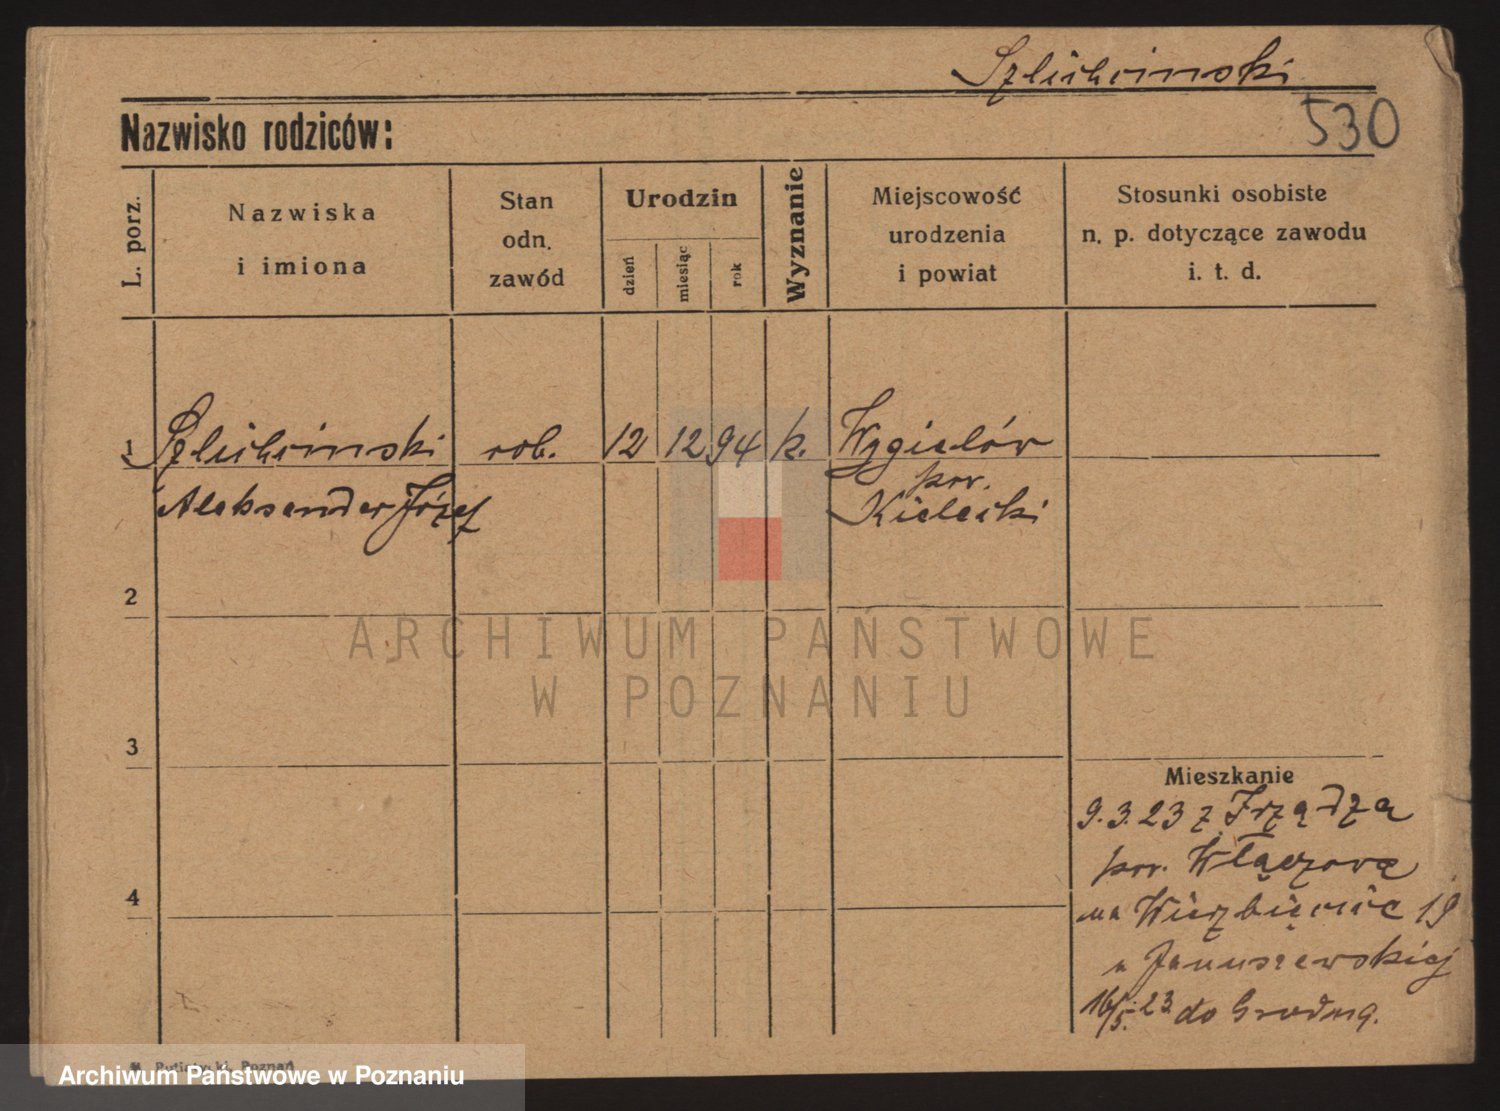 Szlichcinski
530
Nazwisko rodziców:
L. porz.
Nazwiska
i imiona
Stan
odn.
zawód
Urodzin
dzień
miesiąc
rok
Wyznanie
Miejscowość
urodzenia
i powiat
Stosunki osobiste
n. p. dotyczące zawodu
i. t. d.
1 Szlichcinski rob. 12 12 94 k. Wygiełów
pow.
Aleksander Józef Kielecki
2
ARCHIWUM PAŃSTWOWE
W POZNANIU
3
Mieszkanie
9.3.23 z
pow.
4
na Wierzbięcice 19
u Januszewskiej
16/5. 23 do Grodna.
Poznań
Archiwum Państwowe w Poznaniu